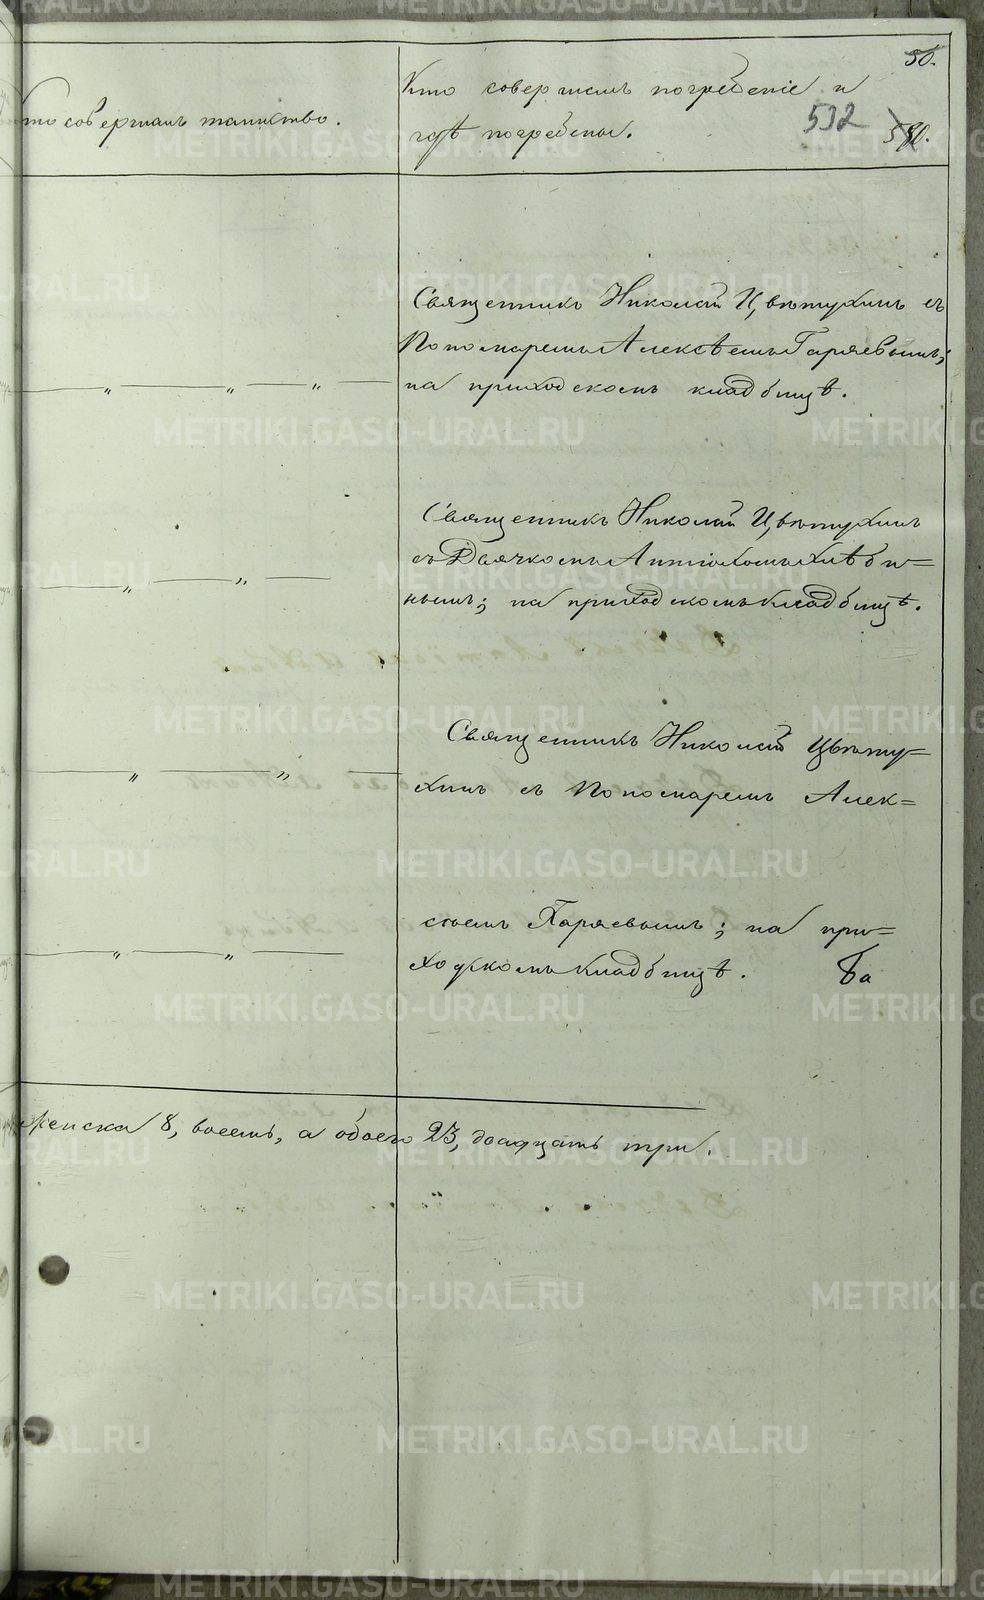 50.
Кто совершалъ погребеніе и
то совершалъ таинство.
гдѣ погребены.
532
580.
Священникъ Николай Цвѣтухинъ съ
Пономаремъ Алексѣемъ Гаряевымъ;
на приходскомъ кладбищѣ.
Священникъ Николай Цвѣтухинъ
съ Дьячкомъ Антіохомъ Хлѣби=
нымъ; на приходскомъ кладбищѣ.
Священникъ Николай Цвѣту=
хинъ съ Пономаремъ Алек=
сѣемъ Гаряевымъ; на при=
ходскомъ кладбищѣ.
женска 8, восемь, а обоего 23, двадцать три.
METRIKI.GASO-URAL.RU